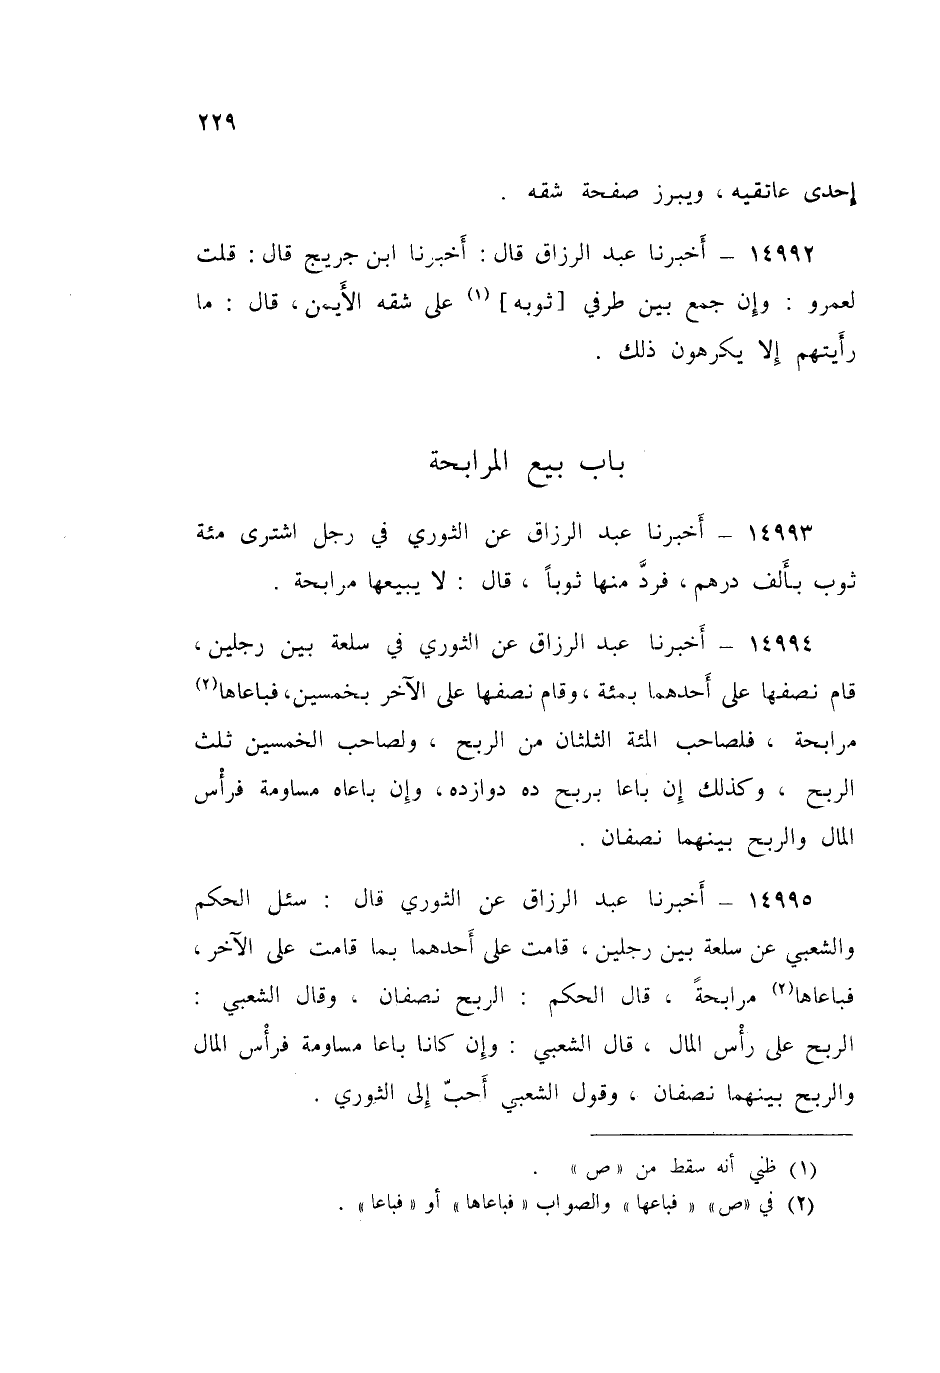 ٢٢٩
إحدى عاتقيه ، ويبرز صفحة شقه .
١٤٩٩٢ ــ أخبرنا عبد الرزاق قال : أخبرنا ابن جريج قال : قلت
لعمرو : وإن جمع بين طرفي [ثوبه] (١) على شقه الأيمن ، قال : ما
رأيتهم إلا يكرهون ذلك .
باب بيع المرابحة
١٤٩٩٣ ــ أخبرنا عبد الرزاق عن الثوري في رجل اشترى مئة
ثوب بألف درهم ، فردَّ منها ثوباً ، قال : لا يبيعها مرابحة .
١٤٩٩٤ ــ أخبرنا عبد الرزاق عن الثوري في سلعة بين رجلين ،
قام نصفها على أحدهما بمئة ، وقام نصفها على الآخر بخمسين، فباعاها(٢)
مرابحة ، فلصاحب المئة الثلثان من الربح ، ولصاحب الخمسين ثلث
الربح ، وكذلك إن باعا بربح ده دوازده ، وإن باعاه مساومة فرأس
المال والربح بينهما نصفان .
١٤٩٩٥ ــ أخبرنا عبد الرزاق عن الثوري قال : سئل الحكم
والشعبي عن سلعة بين رجلين ، قامت على أحدهما بما قامت على الآخر ،
فباعاها(٢) مرابحةً ، قال الحكم : الربح نصفان ، وقال الشعبي :
الربح على رأس المال ، قال الشعبي : وإن كانا باعا مساومة فرأس المال
والربح بينهما نصفان ، وقول الشعبي أحبّ إلى الثوري .
(١) ظني أنه سقط من « ص » .
(٢) في «ص» « فباعها » والصواب « فباعاها » أو « فباعا » .